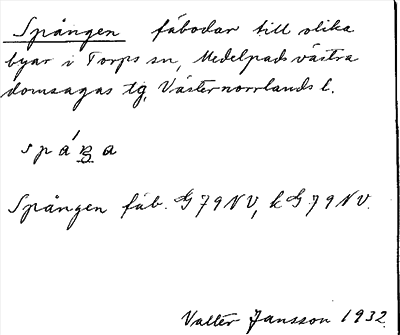 Spången fäbodar till olika
byar i Torps sn, Medelpads västra
domsagas tg, Västernorrlands l.
Spången fäb. G 79 NV, k G 79 NV.
Valter Jansson 1932